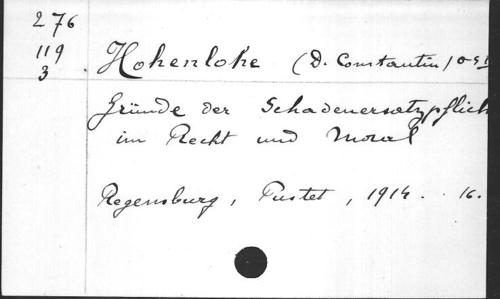 276
119
3
Hohenlohe (D. Constantin) o s b
Gründe der Schadenersatzpflich
im Recht und Moral
Regensburg, Pustet, 1914. 16.